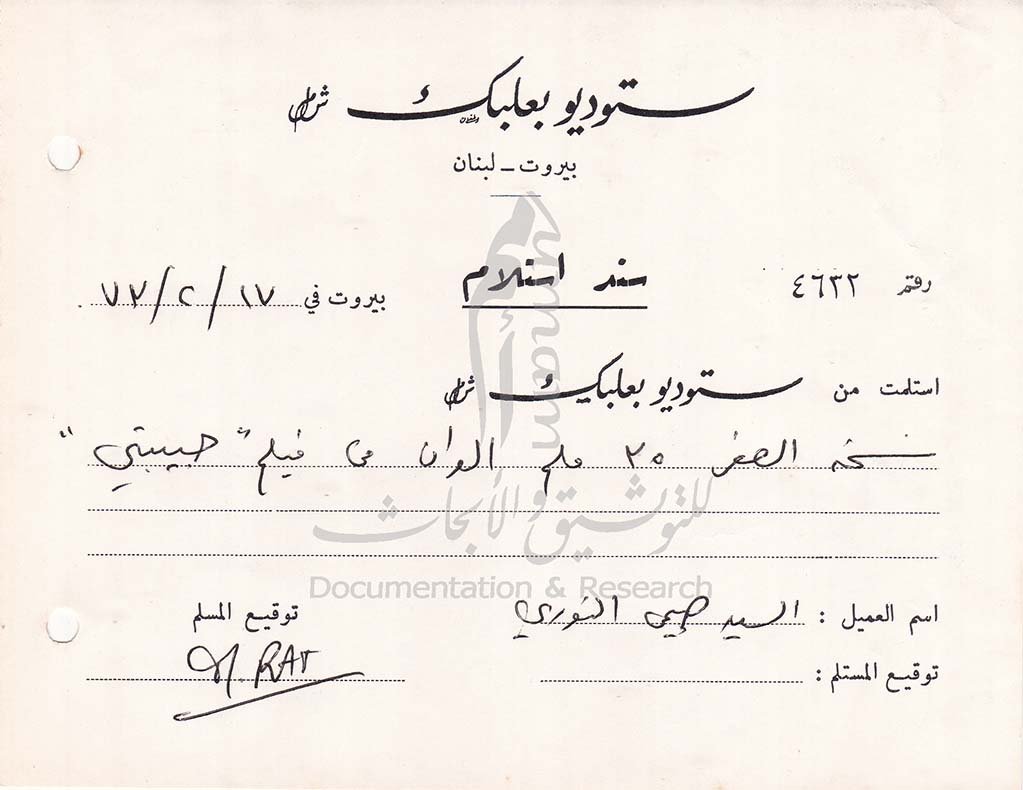 ستوديو بعلبك ش.م.ل
بيروت - لبنان
رقم ٤٦٣٢ سند استلام بيروت في ١٧/٢/٧٣
استلمت من ستوديو بعلبك ش.م.ل
نسخة الصفر ٣٥ ملم الوان من فيلم "حبيبتي"
للتوثيق والأبحاث
Documentation & Research
اسم العميل : السيد صبحي النوري
توقيع المسلم
توقيع المستلم :